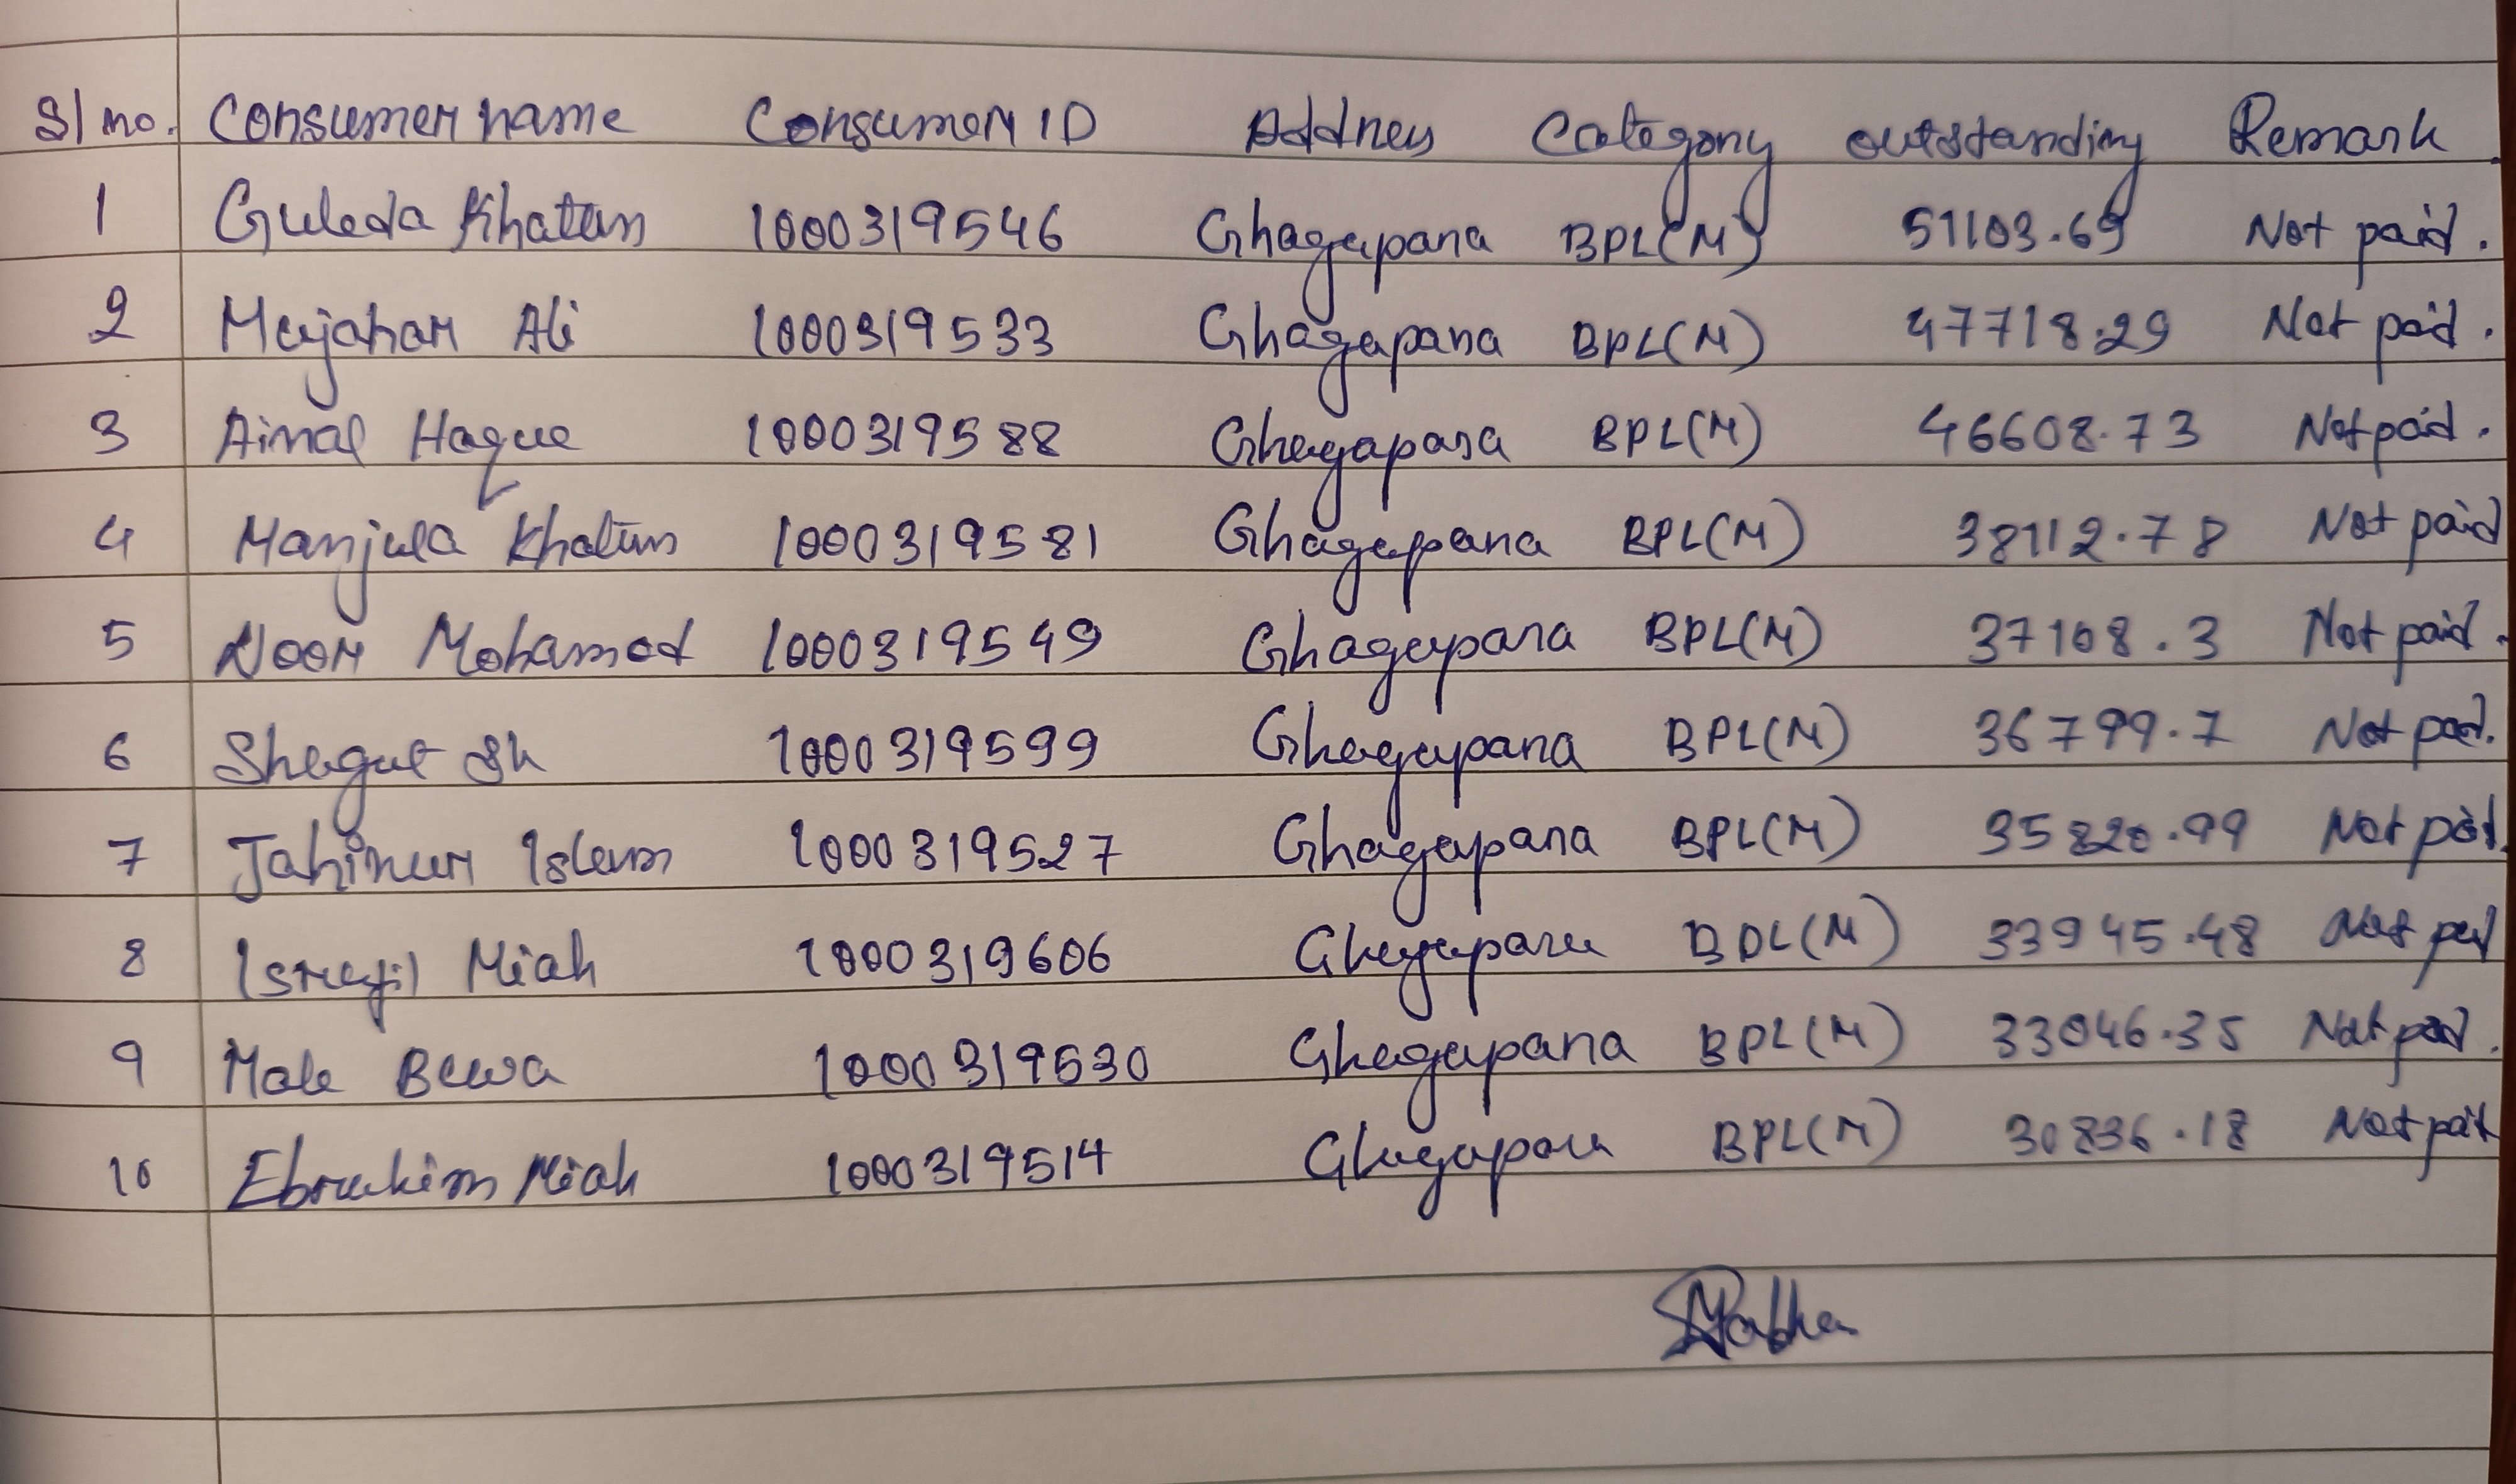 Sl no. Consumer name Consumer ID Address Category outstanding Remark
1 Guleda Khatun 1000319546 Ghagapara BPL(M) 51103.69 Not paid.
2 Mujahar Ali 1000319533 Ghagapara BPL(M) 47718.29 Not paid.
3 Ainal Haque 1000319588 Ghagapara BPL(M) 46608.73 Not paid.
4 Manjula Khatun 1000319581 Ghagapara BPL(M) 38112.78 Not paid
5 Noor Mohamod 1000319549 Ghagapara BPL(M) 37108.3 Not paid.
6 Shagut Sk 1000319599 Ghagapara BPL(M) 36799.7 Not paid.
7 Jahinur Islam 1000319527 Ghagapara BPL(M) 35820.99 Not paid.
8 Israjil Miah 1000319606 Ghagapara BPL(M) 33945.48 Not paid
9 Male Bewa 1000319530 Ghagapara BPL(M) 33046.35 Not paid.
10 Ebrahim Miah 1000319514 Ghagapara BPL(M) 30836.18 Not paid